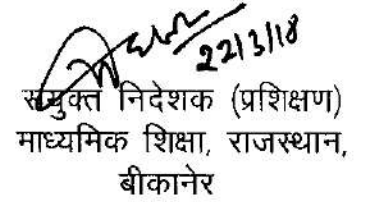 22/3/18
संयुक्त निदेशक (प्रशिक्षण)
माध्यमिक शिक्षा, राजस्थान,
बीकानेर